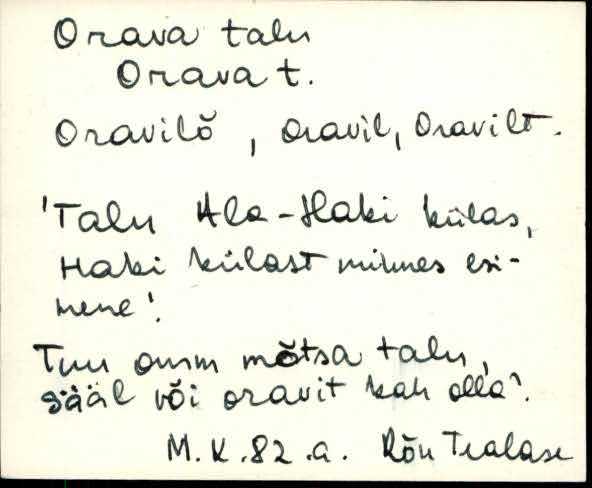 Orava talu
Orava t.
Oravilõ, Oravil, Oravilt.
'Talu Ala-Haki külas,
Haki külast minnes esi-
mene'.
Tuu omm mõtsa talu,
sääl või oravit kah olla'.
M.K. 82.a. Rõn